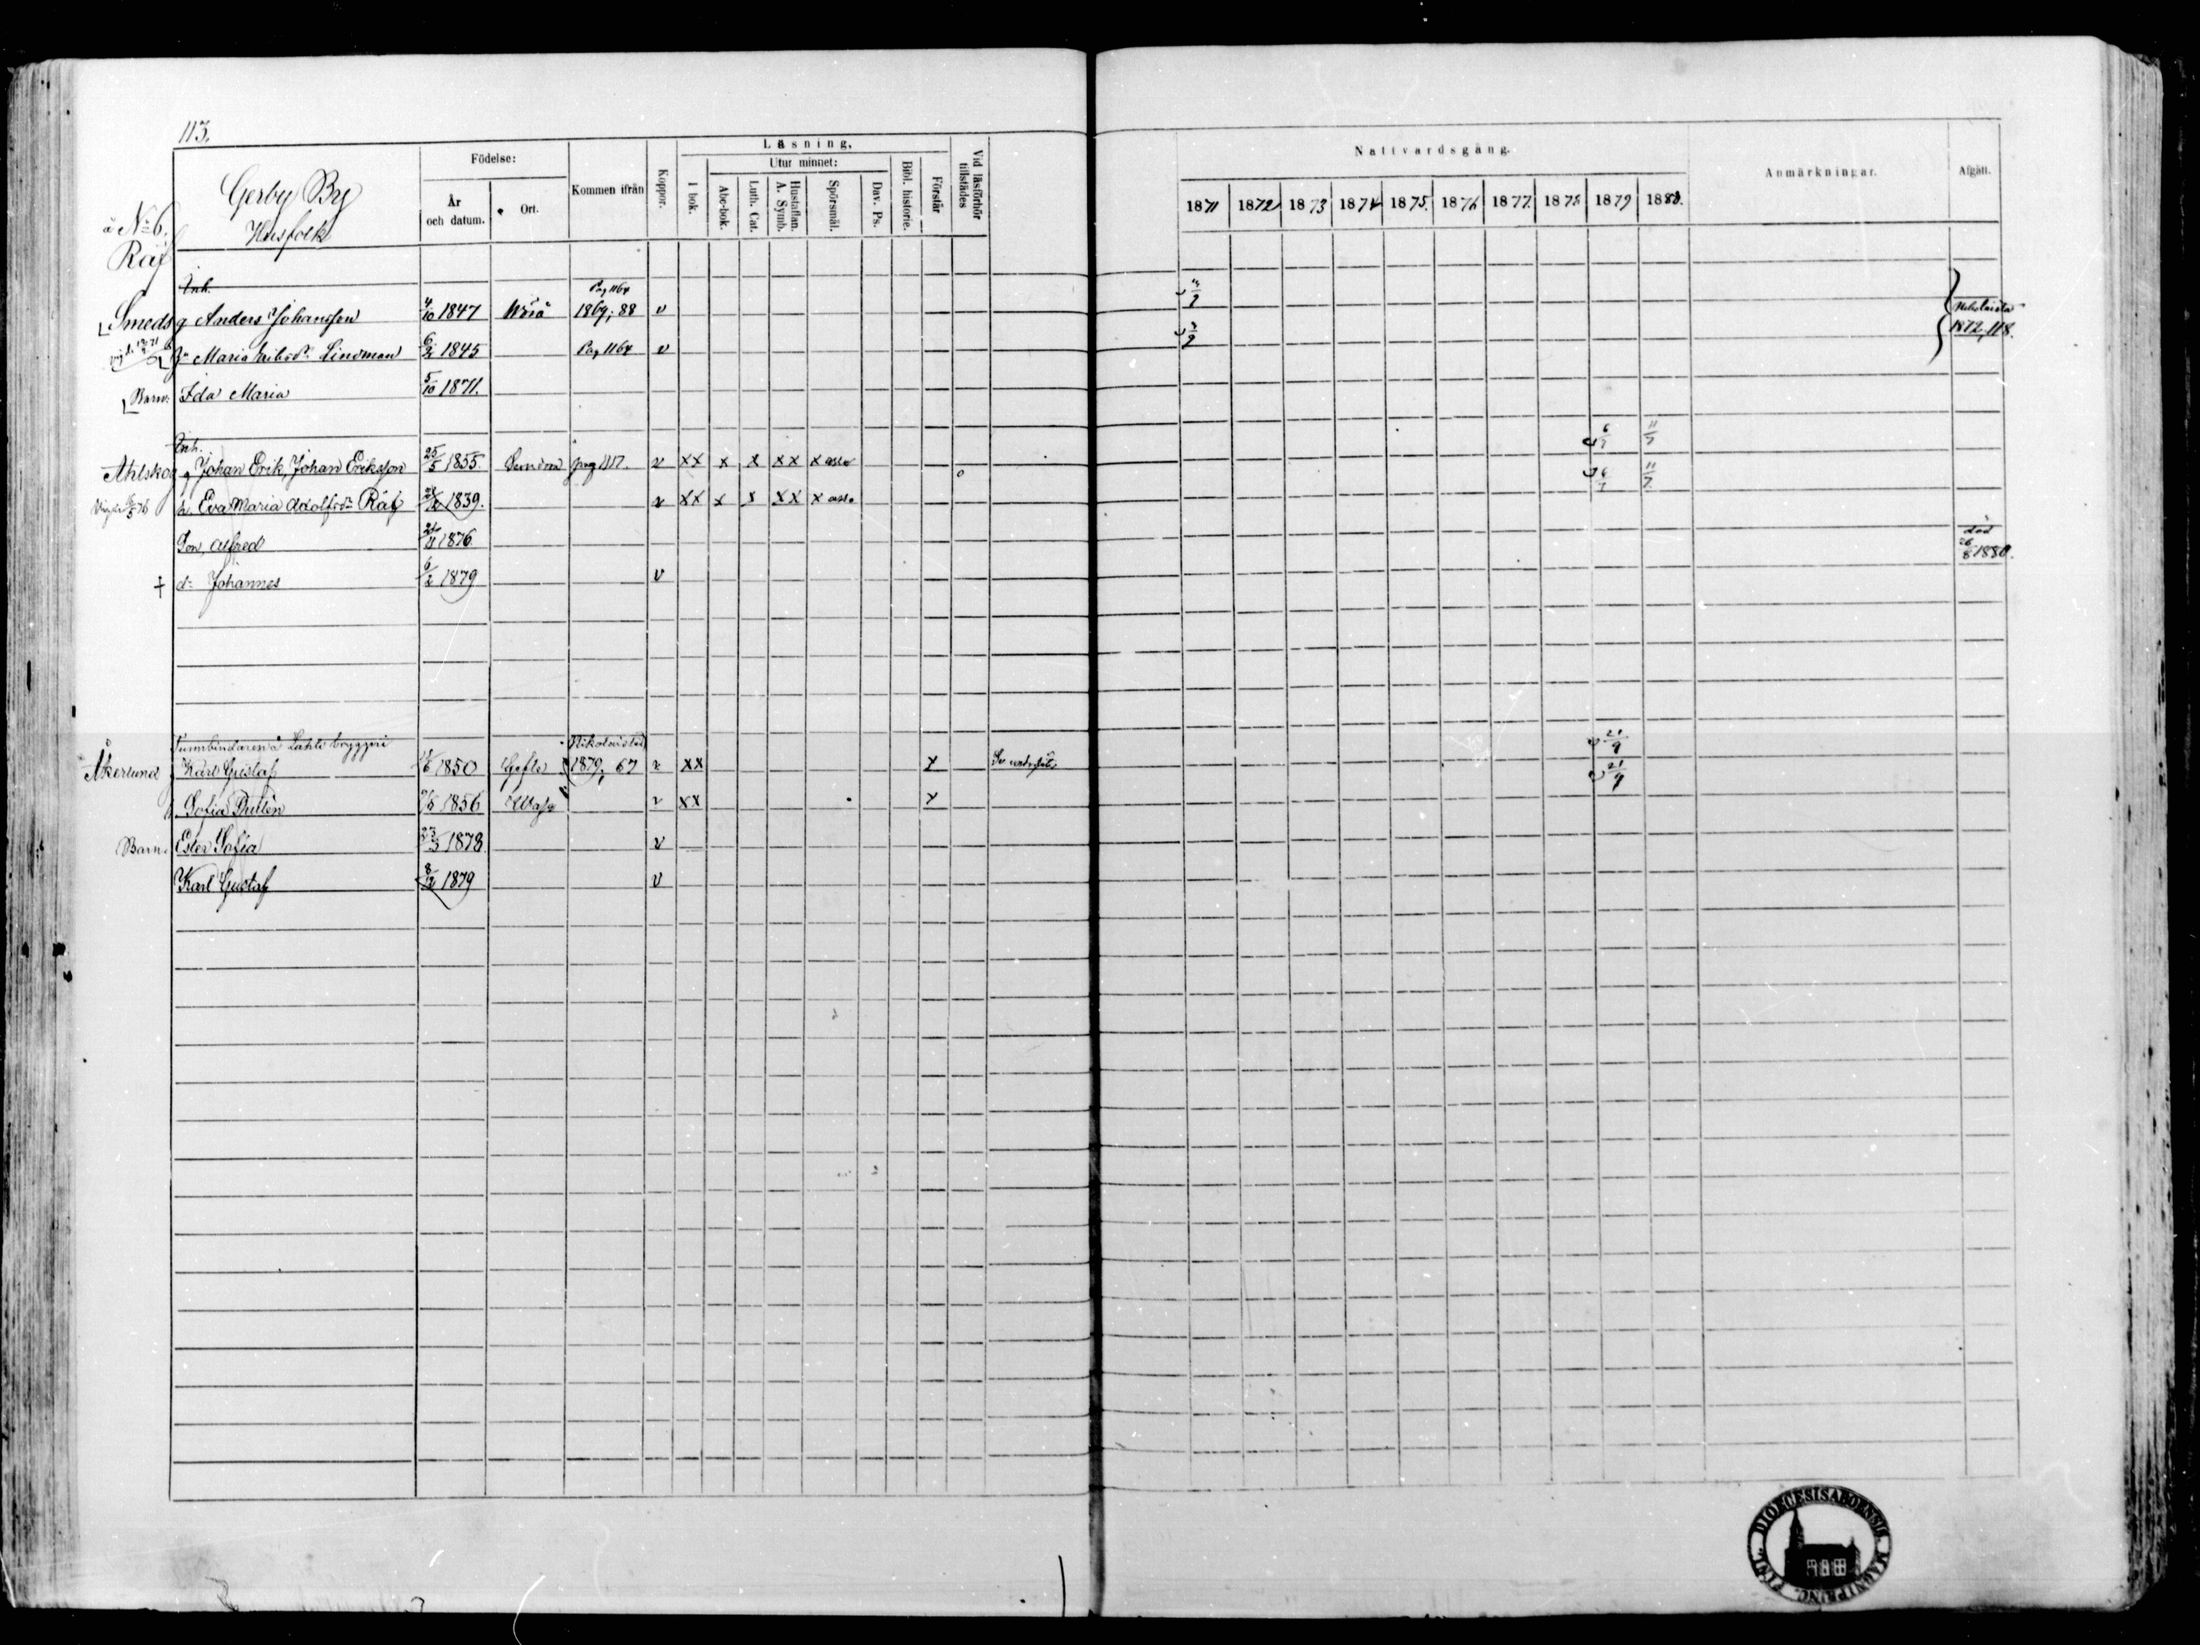 113.
Gerby By
Husfolk
å No 6.
Räf
Födelse:
År och datum.
Ort.
Kommen ifrån
Koppor.
Läsning,
I bok.
Utur minnet:
Abc-bok.
Luth. Cat.
Hustaflan. A. Symb.
Spörsmål.
Dav. Ps.
Bibl. historie.
Förstår
Vid läsförhör tillstädes
Nattvardsgång.
1871 1872 1873 1874 1875. 1876 1877. 1878 1879 1880.
Anmärkningar.
Afgått.
Inh.
Pag 1164
Smeds g Anders Johansson 4/10 1847 Wörå 1869; 88 v
1872, 118.
Maria Lindman 6/2 1845 Pag 1164 v
Barn: Ida Maria 5/10 1871.
Inh.
Ahlskog g Johan Erik, Johan Eriksson 25/5 1855. v xx x x xx x 6/7 11/7
h. Eva Maria Adolfsdr Räf 1839. v xx x x xx x 6/7 11/7
Son, Alfred 1876
död
26/8 1880.
† do Johannes 6/2 1879 v
Tunnbindaren å bryggeri
Nikolaistad
Åkerlund Karl Gustaf 1850 Gefle 1879, 67 v xx x 21/9
Sofia 1856 Wasa v xx x 21/9
Barn. Ester Sofia 1878 v
Karl Gustaf 8/12 1879 v
DIOECESIS ABOENSIS MAGNI PRINC. FINL.